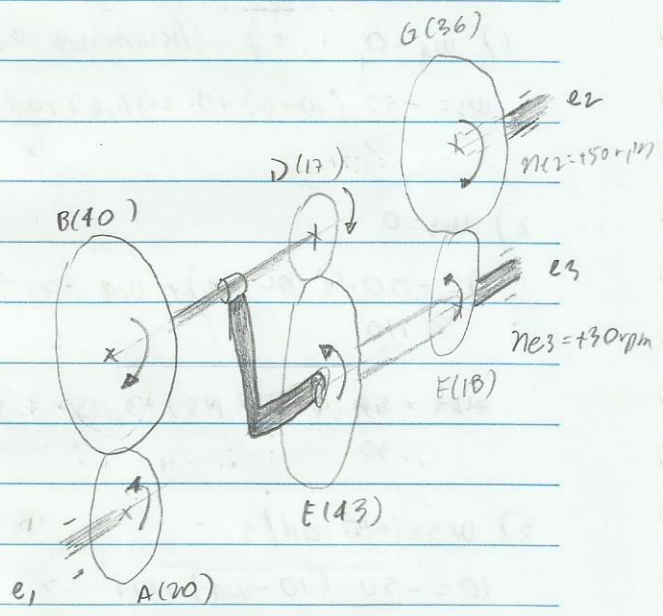 G(36)
e2
ne2=+50rpm
D(17)
B(40)
e3
ne3=+30rpm
E(18)
E(43)
e1
A(20)